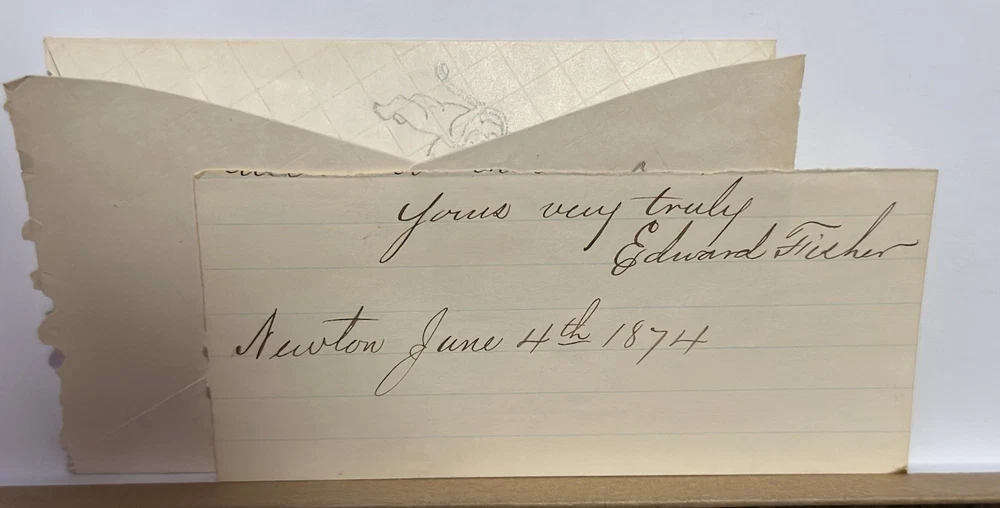 Yours very truly
Edward Fisher
Newton June 4th 1874